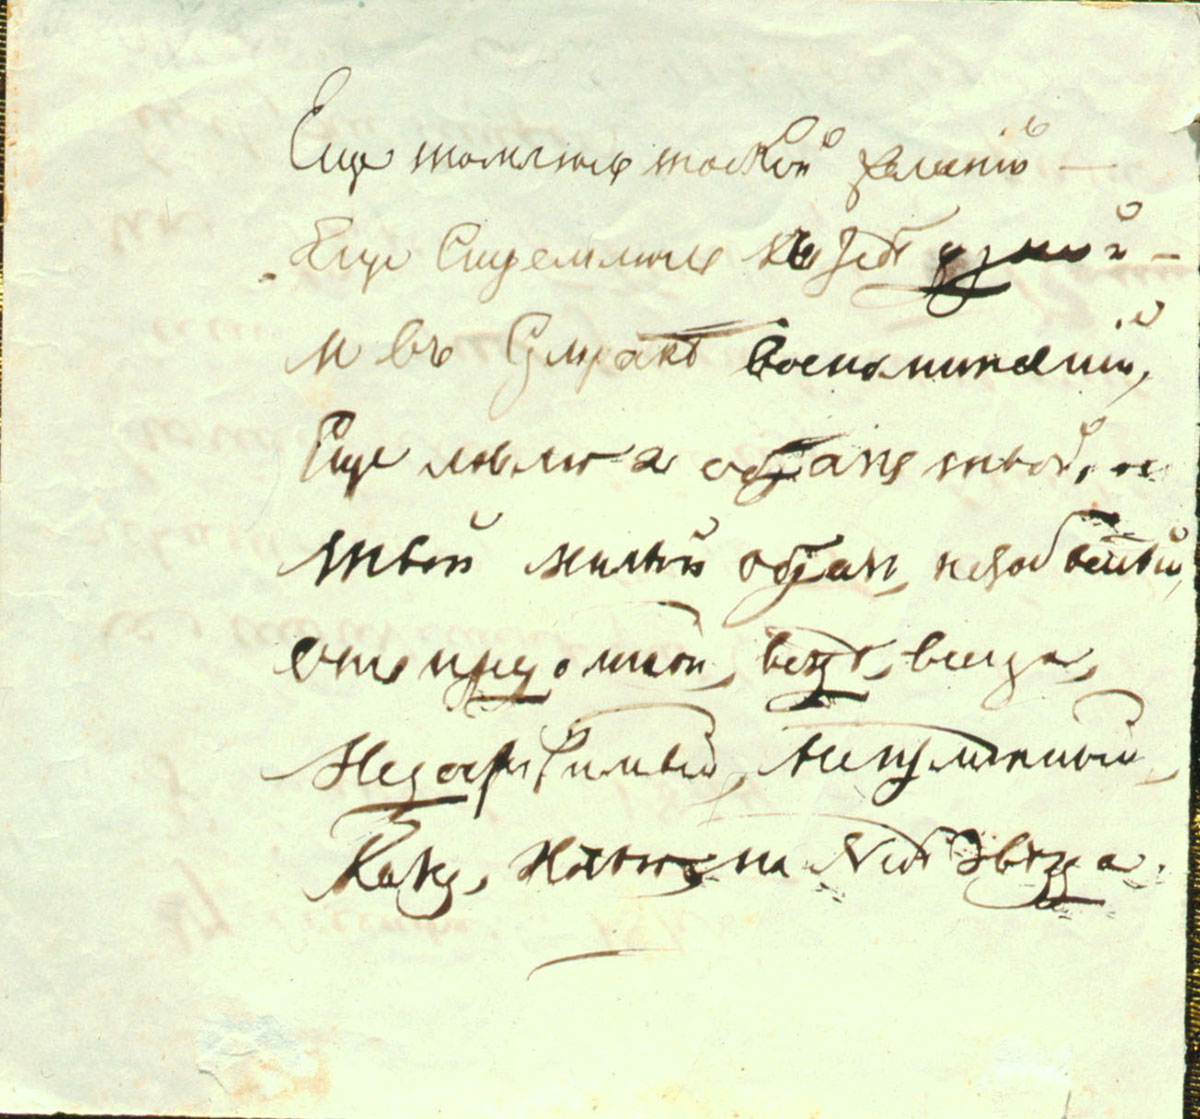 Еще томлюсь тоской желаній —
Еще стремлюсь къ тебѣ душой —
И въ сумракѣ воспоминаній,
Еще ловлю я образъ твой,
Твой милый образъ, незабвенный,
Онъ предо мной, вездѣ, всегда,
Недостижимый, неизмѣнный,
Какъ, ночью на небѣ звѣзда.